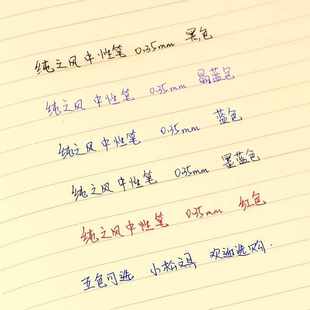 纯之风中性笔 0.35mm 黑色
纯之风中性笔 0.35mm 晶蓝色
纯之风中性笔 0.35mm 蓝色
纯之风中性笔 0.35mm 墨蓝色
纯之风中性笔 0.35mm 红色
五色可选 小松文具 欢迎选购.